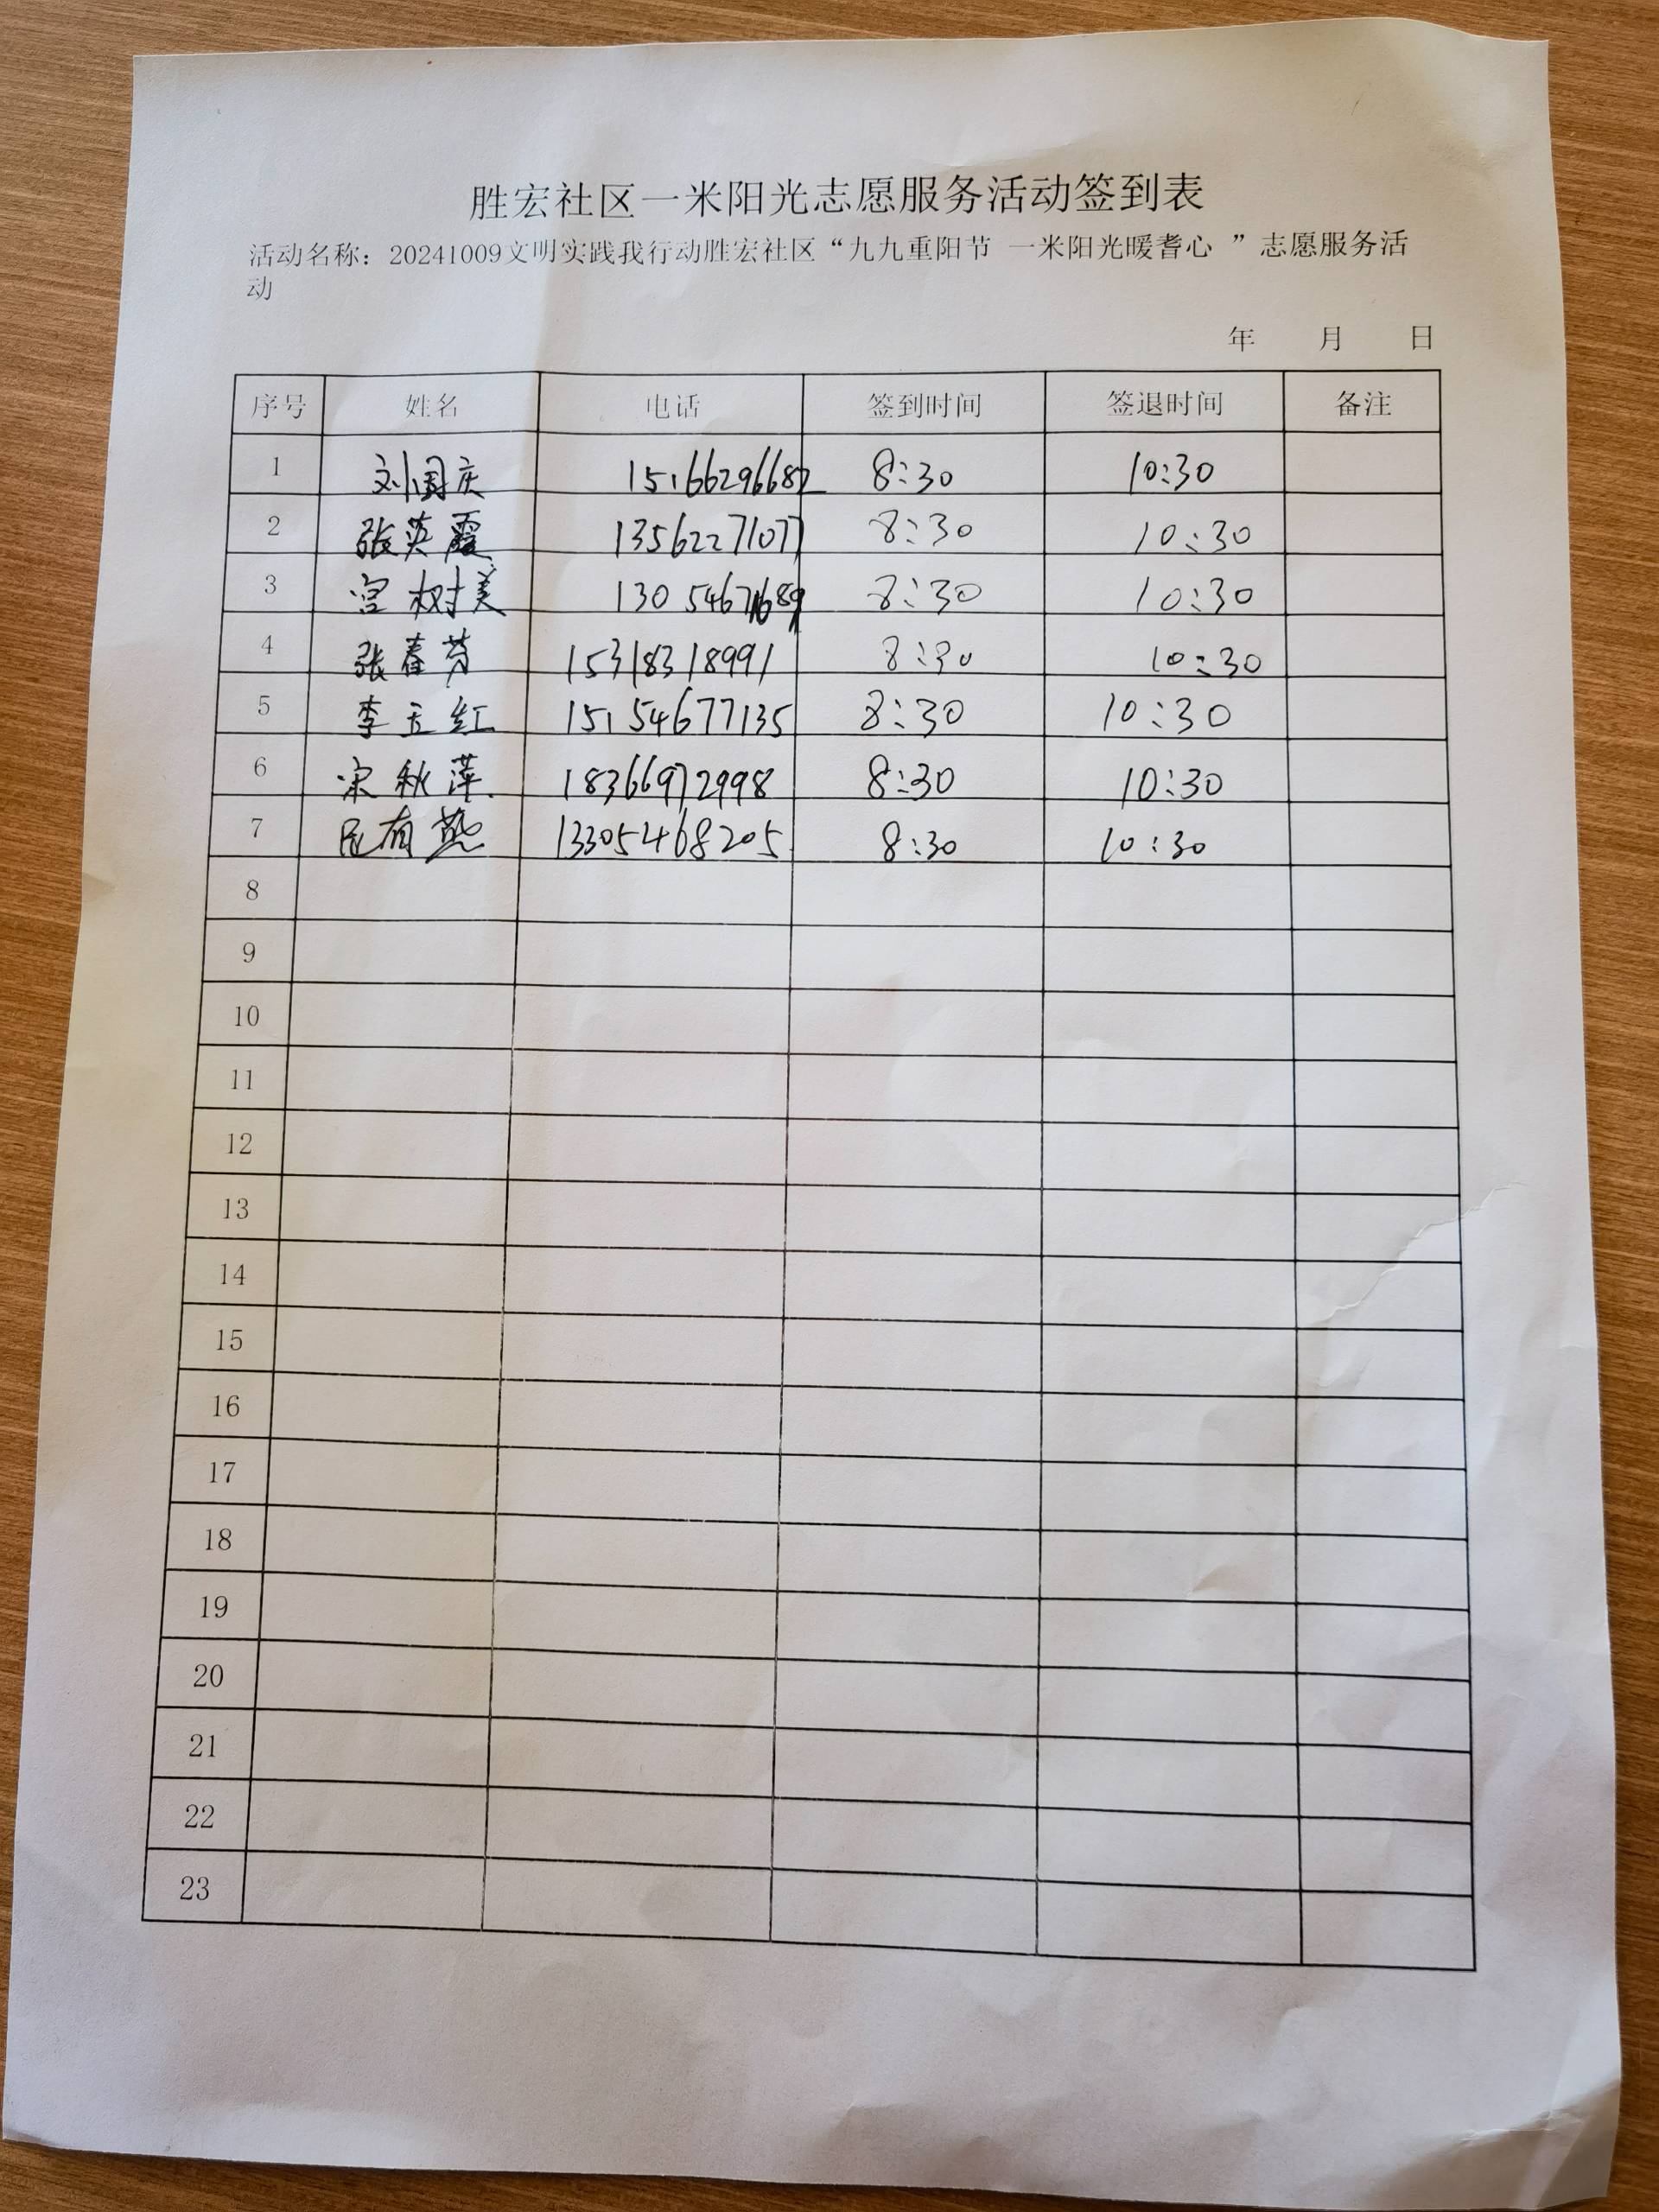 胜宏社区一米阳光志愿服务活动签到表
活动名称：20241009文明实践我行动胜宏社区“九九重阳节 一米阳光暖耆心 ”志愿服务活
动
年 月 日
序号 姓名 电话 签到时间 签退时间 备注
1 刘国庆 15166296682 8:30 10:30
2 张英霞 13562271077 8:30 10:30
3 宫树美 8:30 10:30
4 张春芳 15318318991 8:30 10:30
5 李玉红 15154677135 8:30 10:30
6 宋秋萍 18366972998 8:30 10:30
7 13305468205 8:30 10:30
8
9
10
11
12
13
14
15
16
17
18
19
20
21
22
23